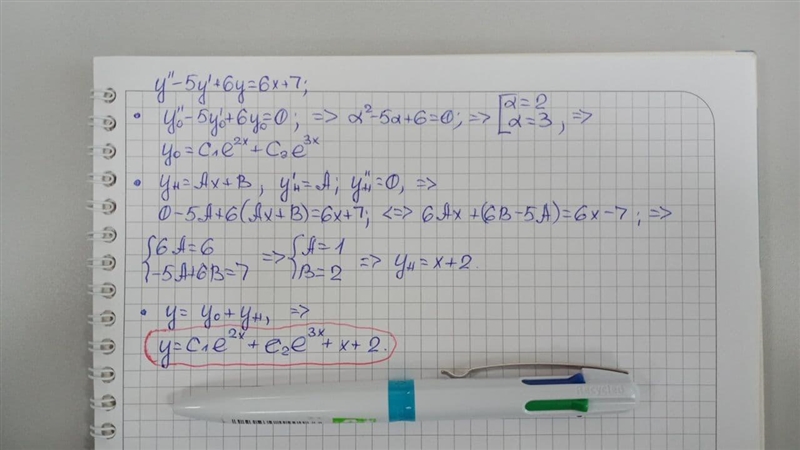 y''-5y'+6y=6x+7;
• y₀''-5y₀'+6y₀=0; => α²-5α+6=0; => [α=2 α=3, =>
y₀=C₁e^{2x}+C₂e^{3x}
• yн=Ax+B, y'н=A; y''н=0, =>
0-5A+6(Ax+B)=6x+7; <=> 6Ax+(6B-5A)=6x-7; =>
{6A=6 => {A=1
{-5A+6B=7 {B=2 => yн=x+2.
• y=y₀+yн, =>
y=C₁e^{2x}+C₂e^{3x}+x+2.
Recycled